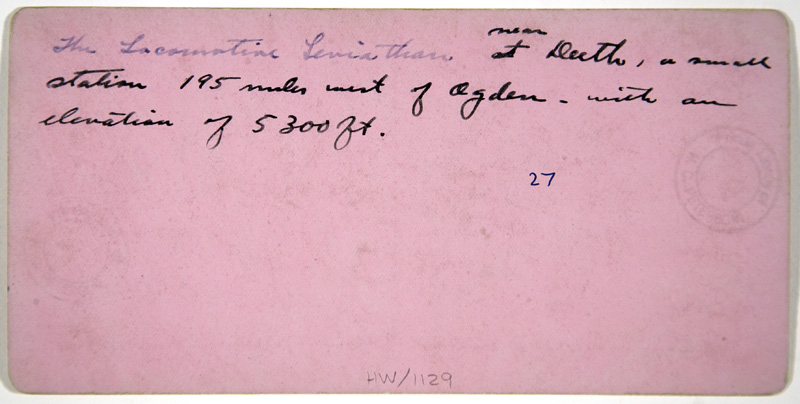 The Locomotive Leviathan near at Deeth, a small
station 195 miles west of Ogden - with an
elevation of 5300 ft.
27
HW/1129